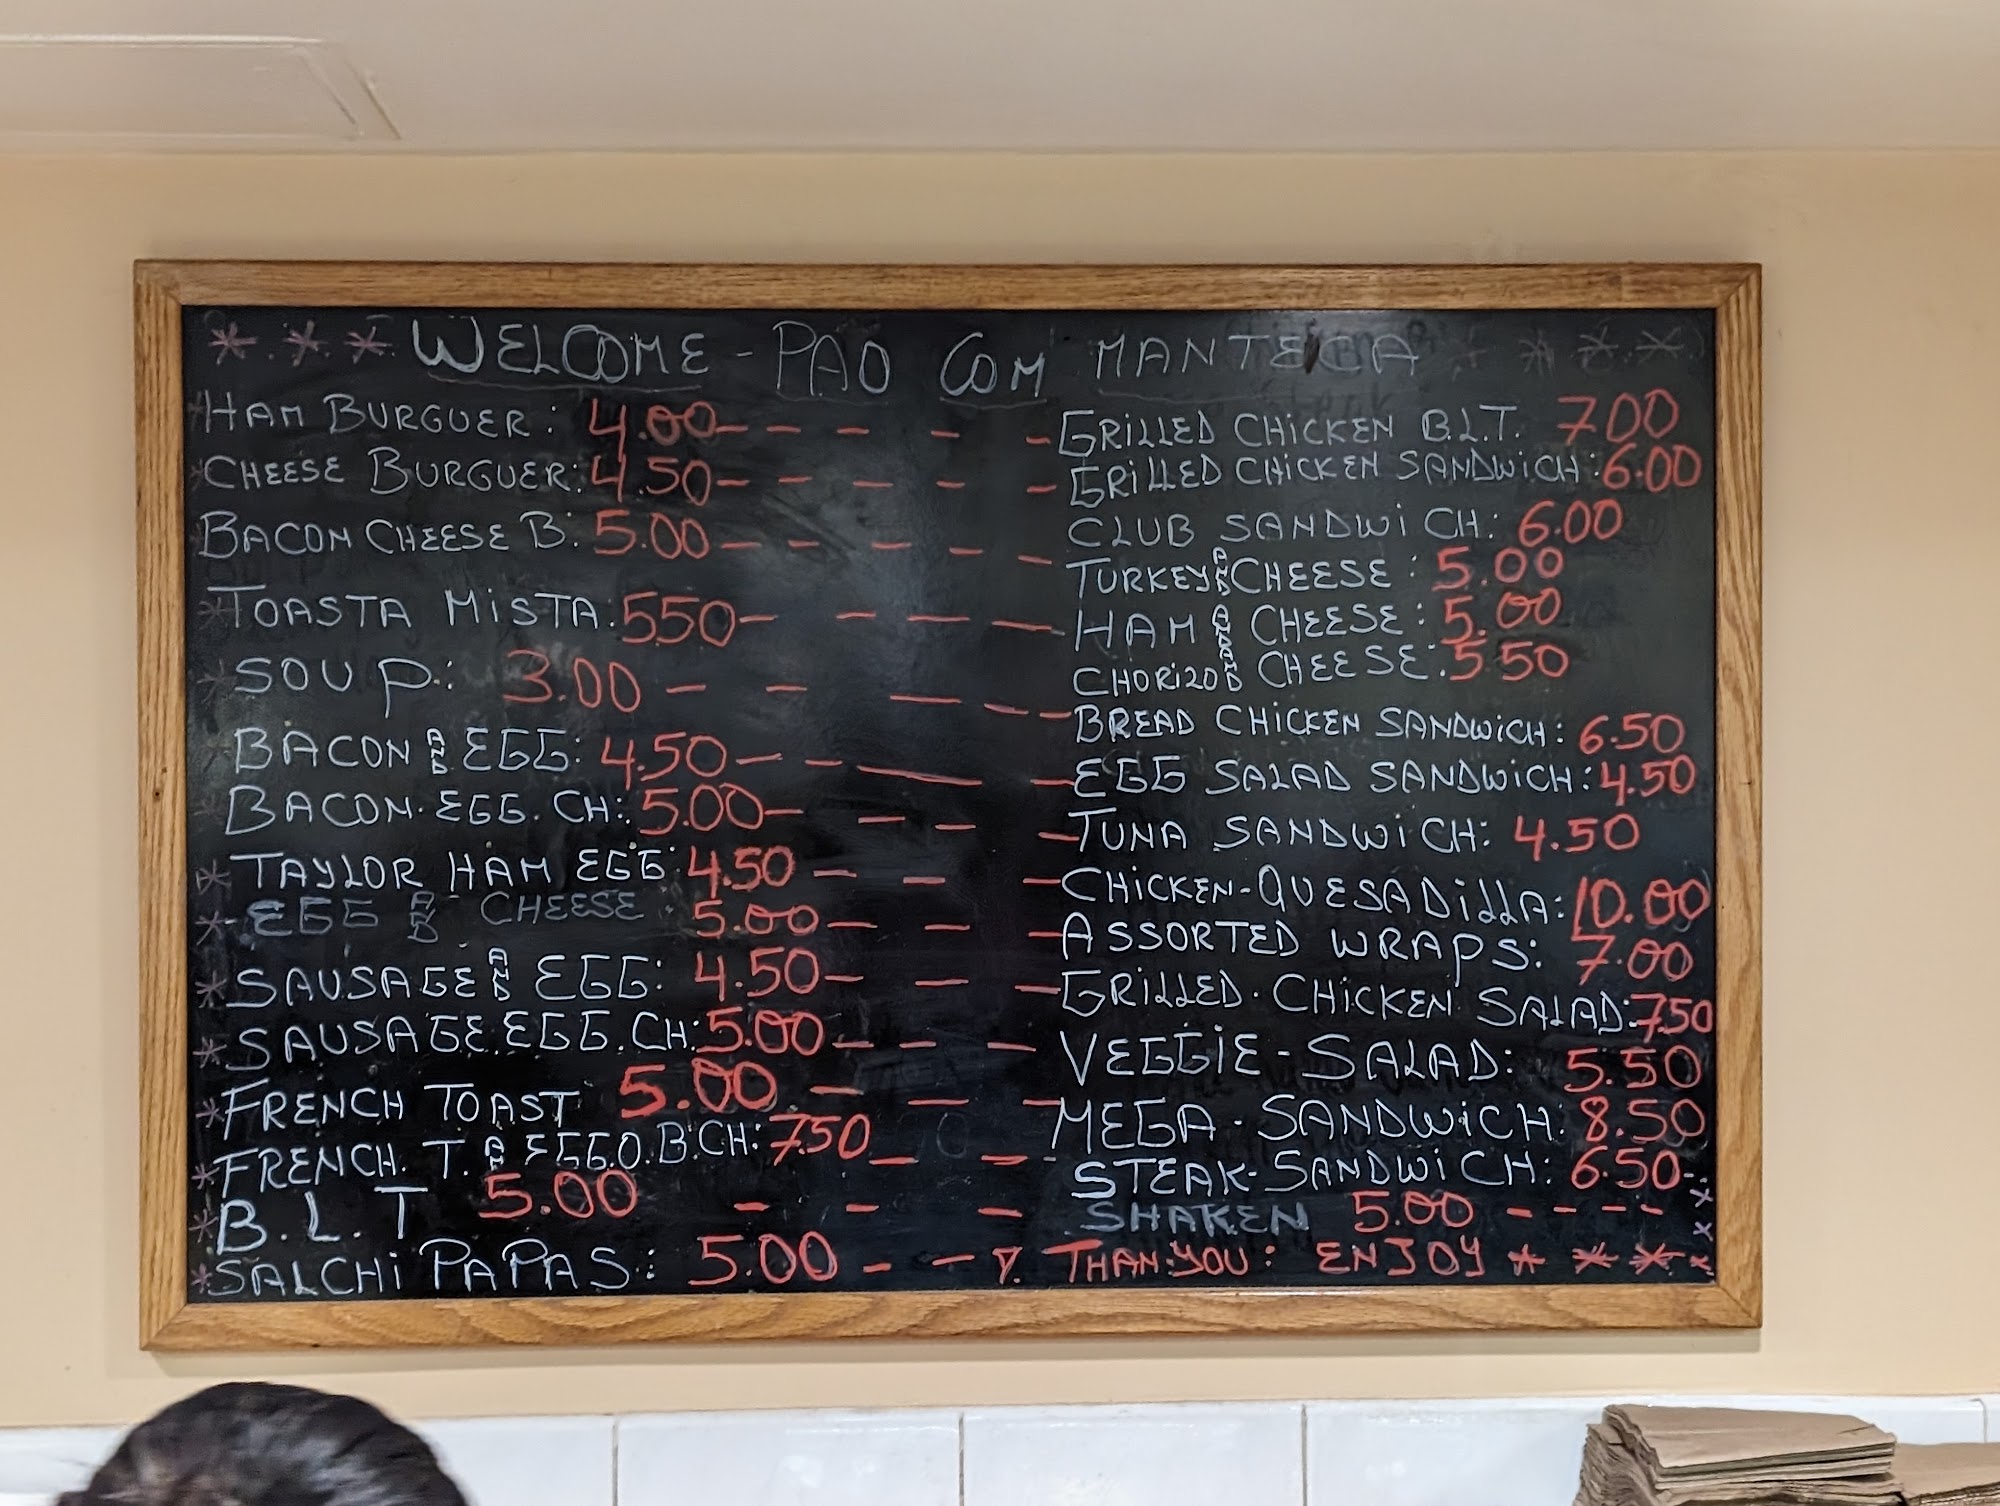 * * * WELCOME - PAO COM MANTEIGA * * *
* HAM BURGUER: 4.00 - - - - -
* CHEESE BURGUER: 4.50 - - - - - -
BACON CHEESE B: 5.00 - - - - -
* TOASTA MISTA: 550 - - - - -
* SOUP: 3.00 - - - - -
BACON AND EGG: 4.50 - - - - -
BACON. EGG. CH: 5.00 - - - -
* TAYLOR HAM EGG: 4.50 - - - -
* EGG AND CHEESE 5.00 - - -
* SAUSAGE AND EGG: 4.50 - - -
* SAUSAGE. EGG. CH: 5.00 - - - -
* FRENCH TOAST 5.00 - - - -
* FRENCH. T. AND EGG O. B. CH: 750 - - -
* B. L. T 5.00 - - -
* SALCHiPAPAS: 5.00 - -
GRILLED CHICKEN B.L.T. 700
GRILLED CHICKEN SANDWICH: 6.00
CLUB SANDWICH: 6.00
TURKEY AND CHEESE: 5.00
HAM AND CHEESE: 5.00
CHORIZO AND CHEESE: 5.50
BREAD CHICKEN SANDWICH: 6.50
EGG SALAD SANDWICH: 4.50
TUNA SANDWICH: 4.50
CHICKEN-QUESADILLA: 10.00
ASSORTED WRAPS: 7.00
GRILLED. CHICKEN SALAD: 7.50
VEGGIE-SALAD: 5.50
MEGA-SANDWICH: 8.50
STEAK-SANDWICH: 6.50 -
SHAKEN 5.00 - - - -
THANYOU: ENJOY * * * *